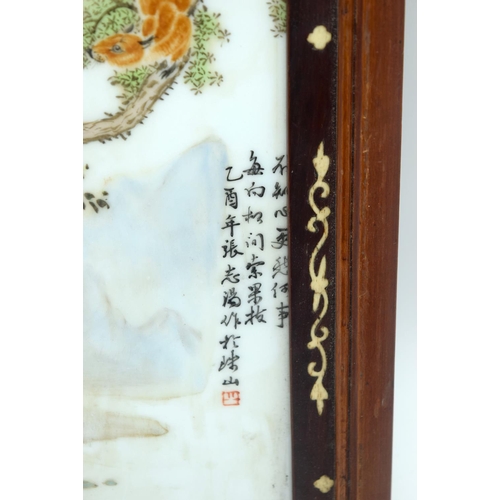 不知心更愁何事
每向松间索果枝
乙酉年張志湯作於珠山